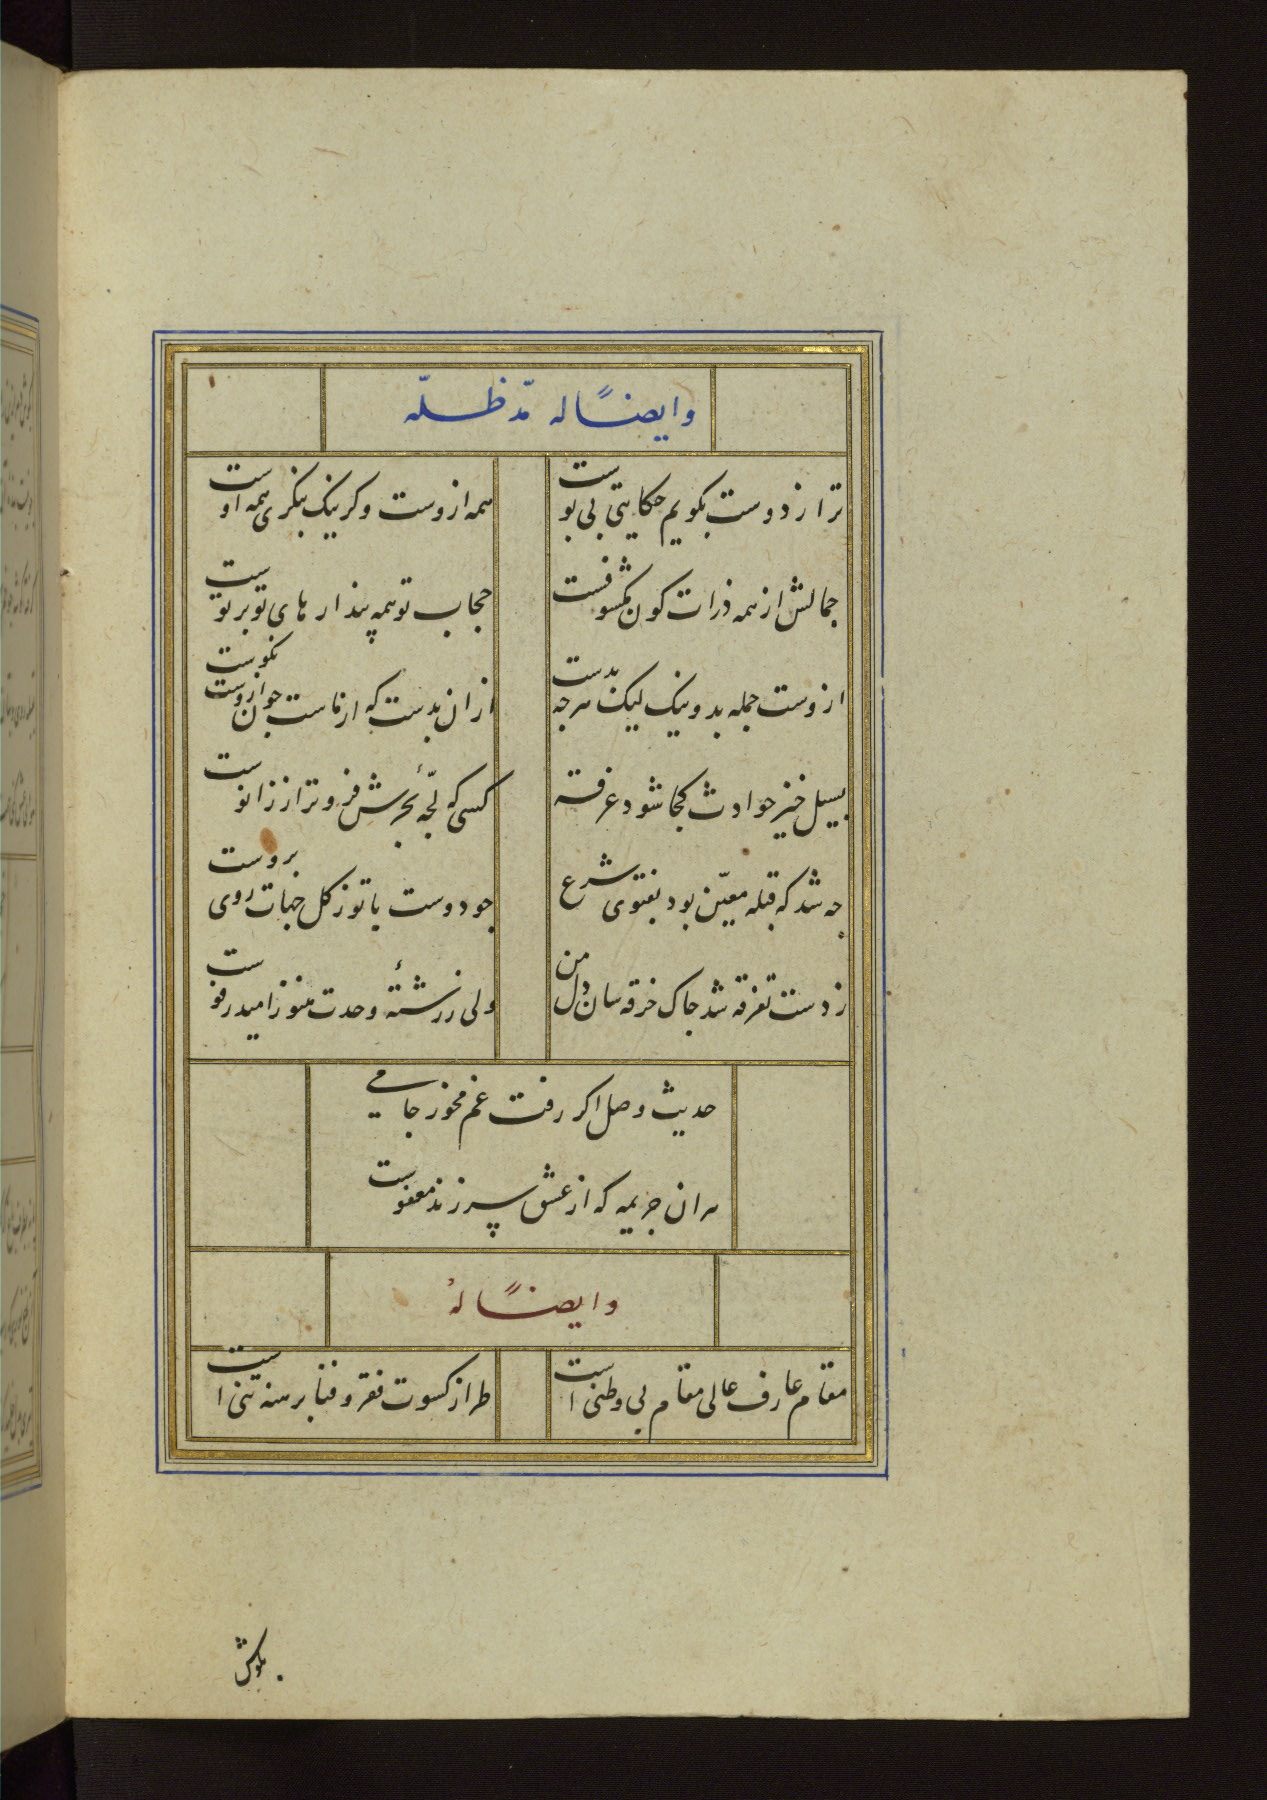 وایضًا له مدّ ظلّه
ترا ز دوست بکویم حکایتی بی بوست
همه ازوست وکر نیک بنکری همه اوست
جمالش از همه ذرات کون مکشوفست
حجاب تو همه پندارهای تو بر توست
ازوست جمله بد و نیک لیک هرچه بدست
ازان بدست که از ماست چون ازوست نکوست
بسیل خیز حوادث کجا شود غرقه
کسی که لجّهٔ بحرش فروتر از زانوست
چه شد که قبله معیّن بود بفتوی شرع
چو دوست با تو ز کل جهات روی بروست
ز دست تفرقه شد چاک خرقه سان دل من
ولی ز رشتهٔ وحدت هنوز امید رفوست
حدیث وصل اکر رفت غم مخور جامی
هران جریمه که از عشق سر زند معفوست
وایضًا لهُ
مقام عارف عالی مقام بی وطنی است
طراز کسوت فقر و فنا برهنه تنی است
بکوش